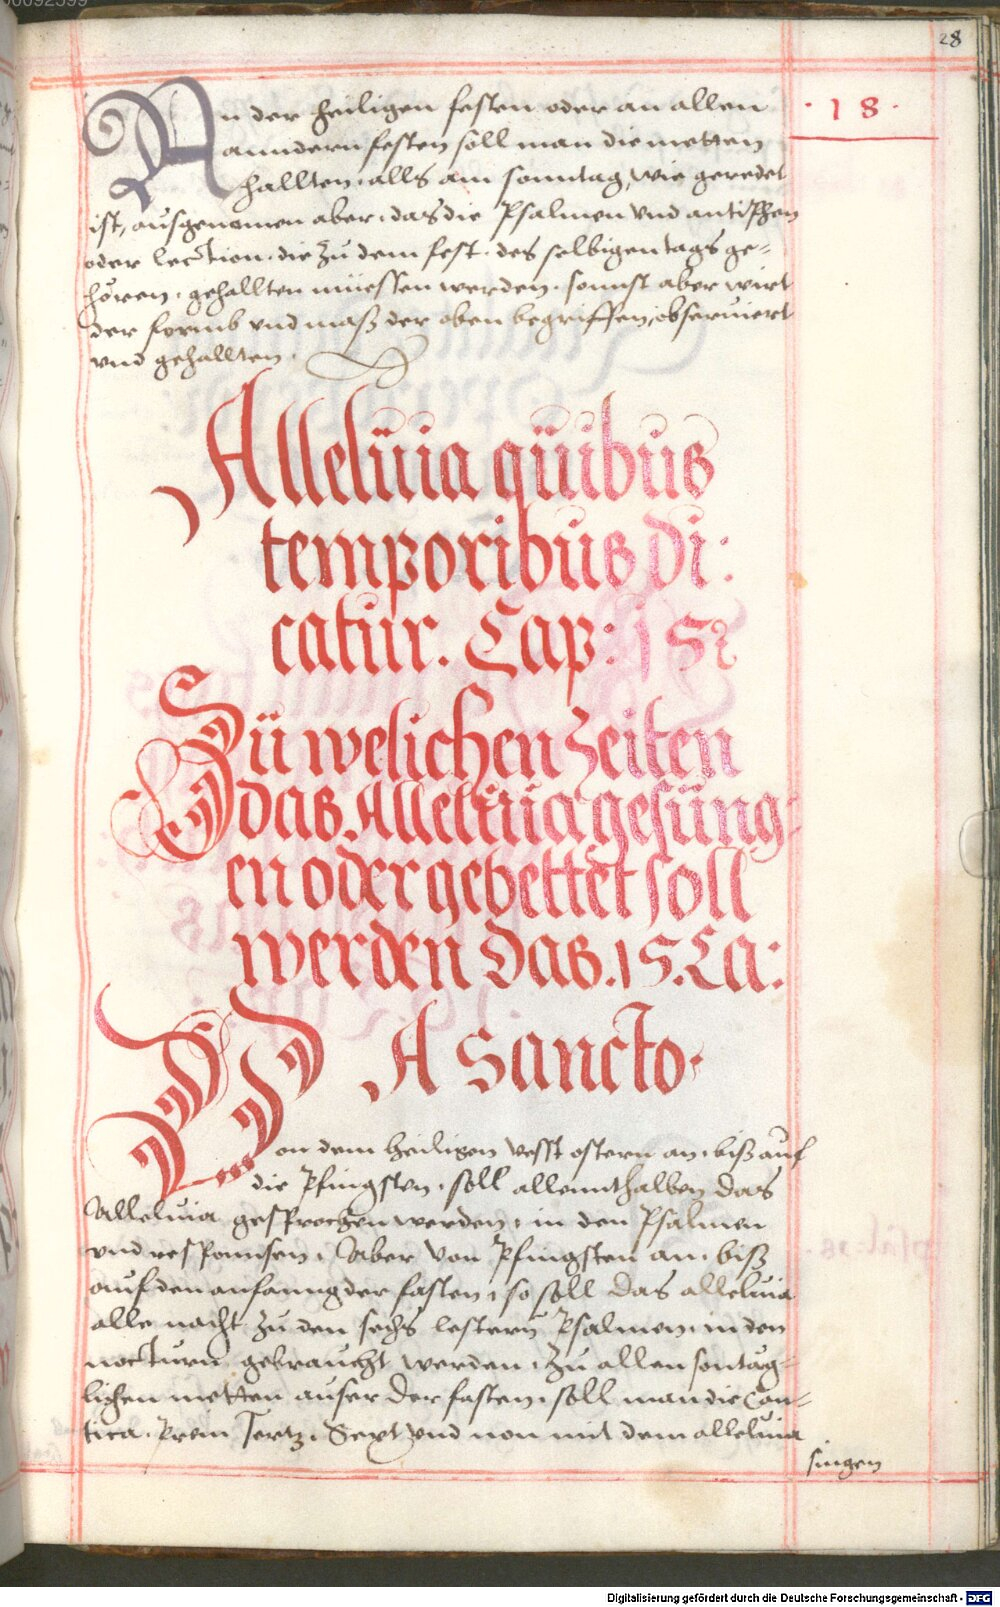 28
· 18 ·
An der heiligen festen oder an allen
anndern festen soll man die metten
hallten, alls am sonntag, wie geredet
ist, ausgenomen aber, das die Psalmen vnd antiphen
oder lection, die zu dem fest, des selbigen tags ge-
hören, gehallten müessen werden, sonnst aber wirt
der formb vnd maß der oben begriffen, obseruiert
vnd gehallten.
Alleluia quibus
temporibus di:
catur. Cap: 15
Zu welichen Zeiten
das Alleluia gesung:
en oder gebettet soll
werden Das. 15. Ca:
A Sancto.
Von dem heiligen vesst ostern an, biß auf
die Pfingsten, soll allennthalben das
Alleluia gesprochen werden, in den Psalmen
vnd responnsen, Aber von Pfingsten an, biß
auf den anfanng der fasten, so soll das alleluia
alle nacht zu den sechs lestern Psalmen, in den
nocturn gebraucht werden, zu allen sontag-
lichen metten auser der fasten, soll man die Can-
tica, Prim Tertz, Sext vnd non mit dem alleluia
singen
Digitalisierung gefördert durch die Deutsche Forschungsgemeinschaft - DFG